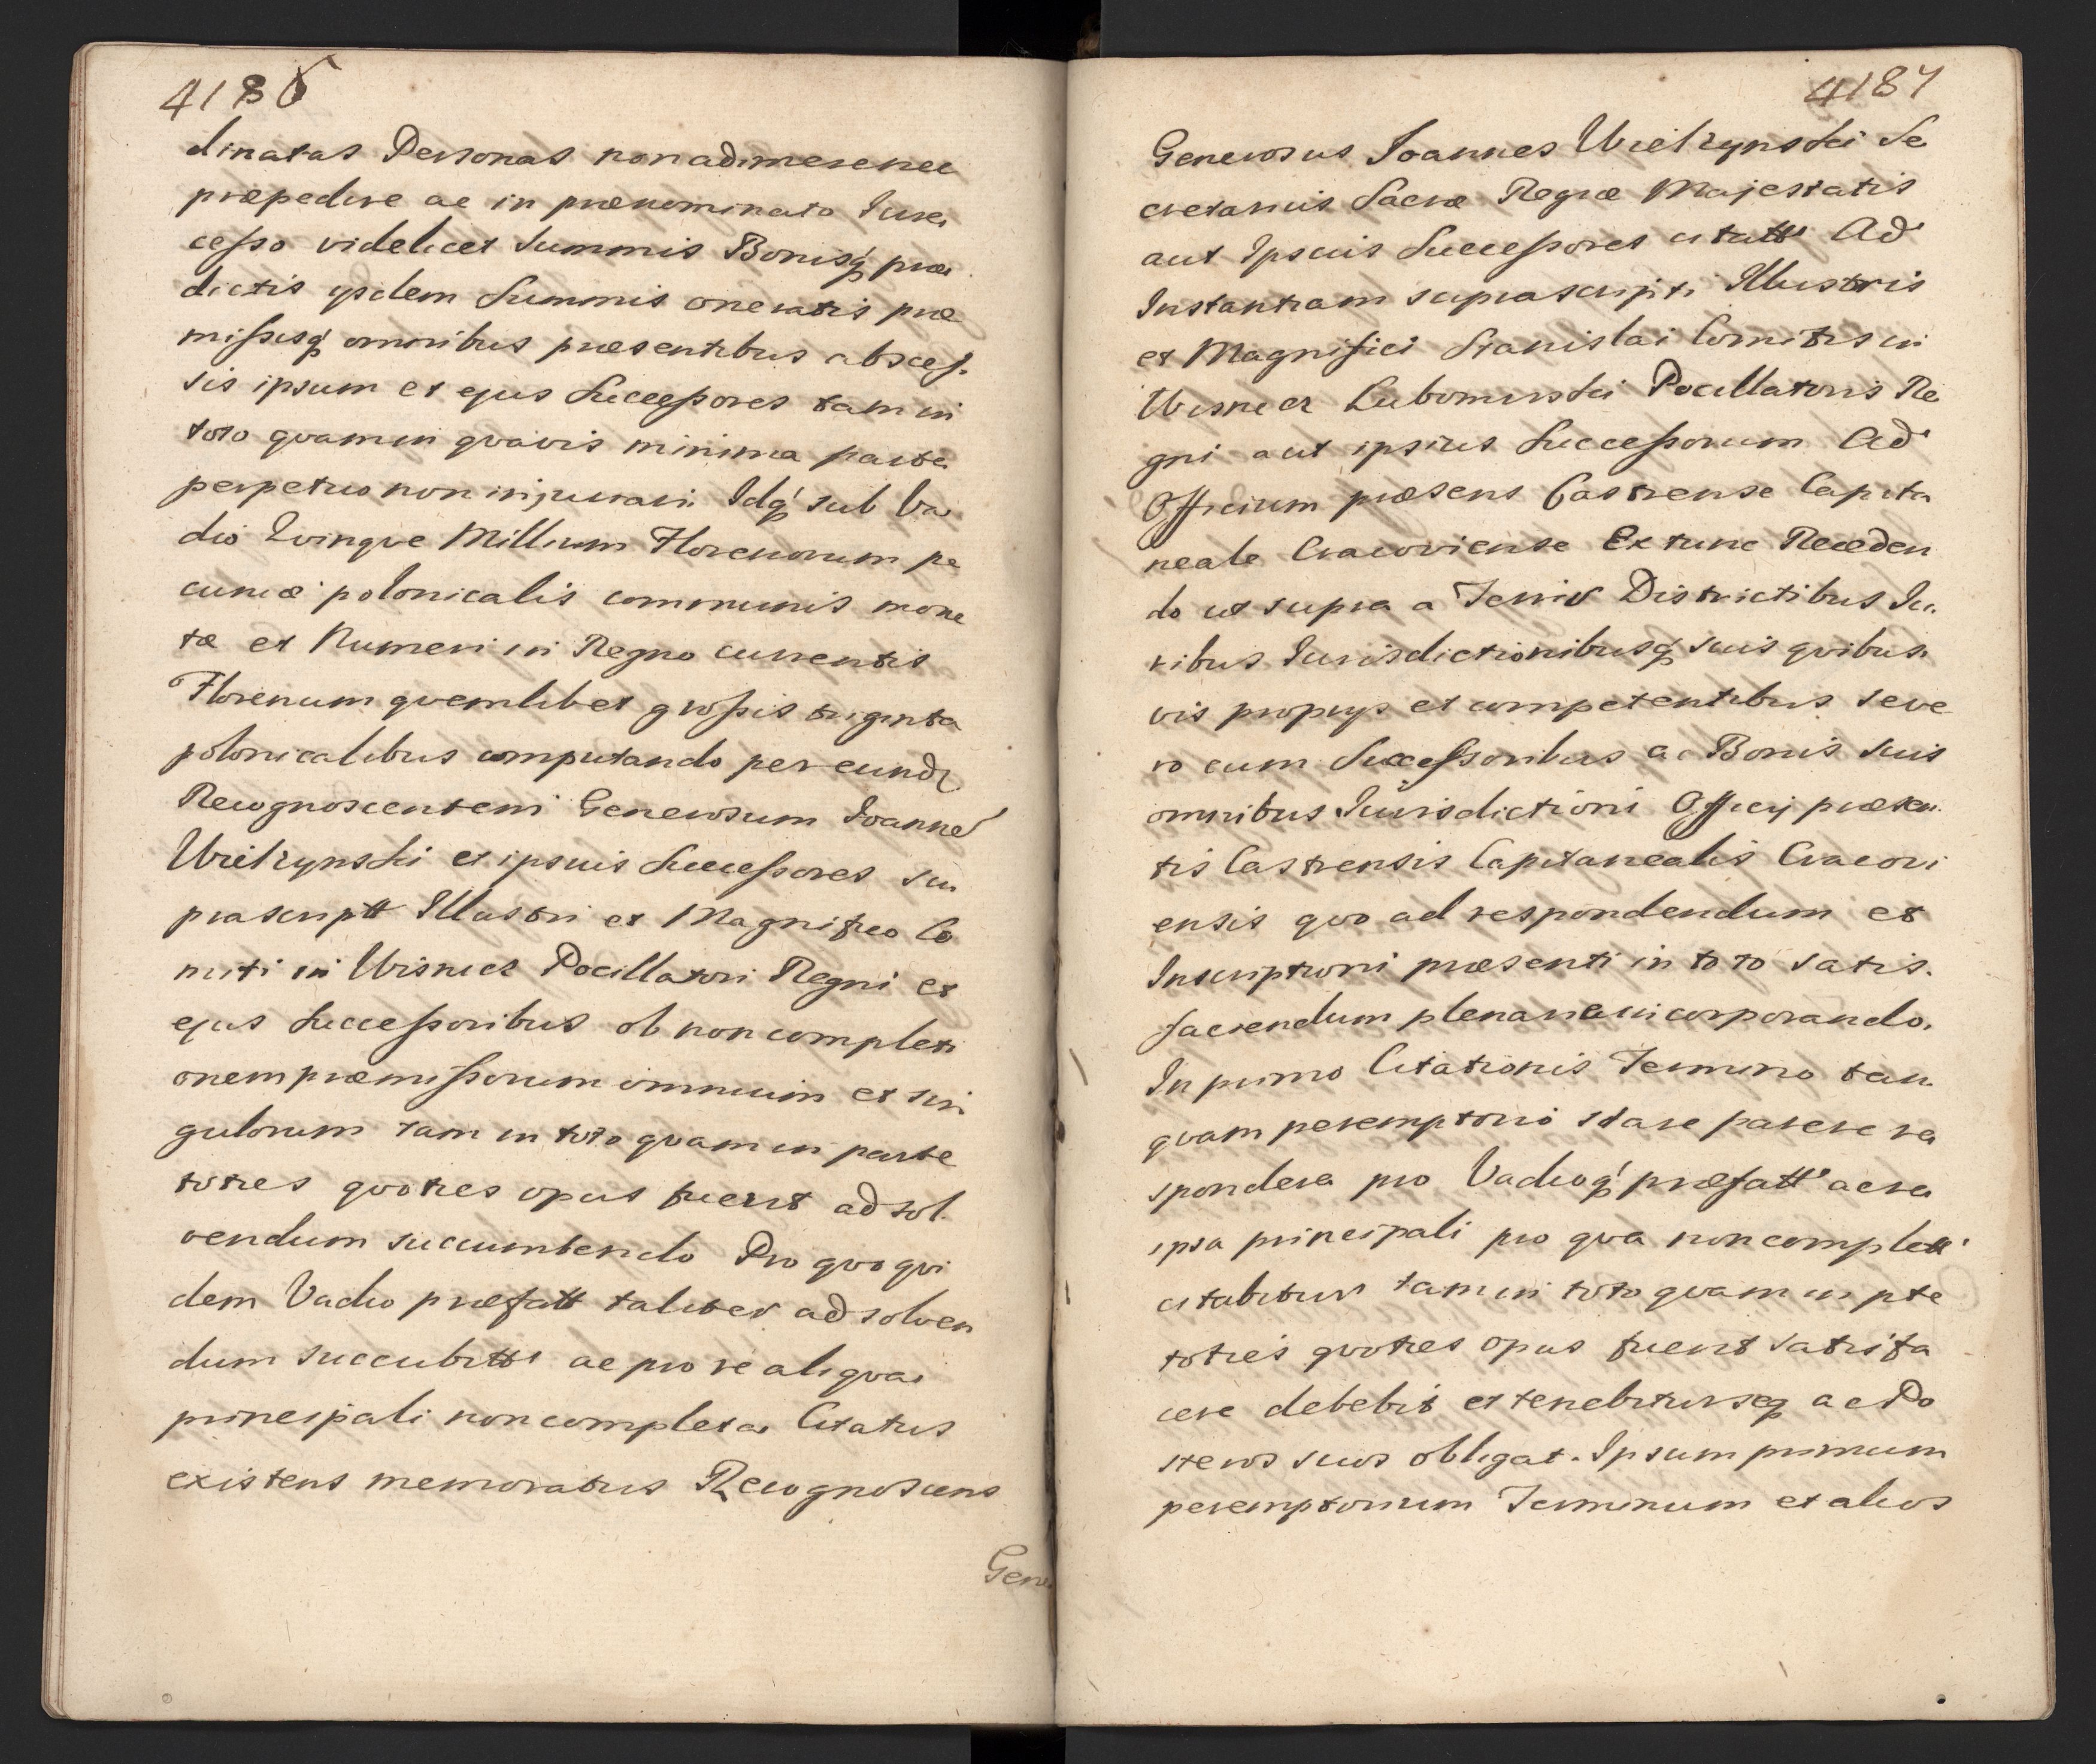 4186
dinatas Personas non adimere nec
præpedire ac in prænominato Jure
cesso videlicet Summis Bonisq præ
dictis ijsdem Summis oneratis præ
missisq omnibus præsentibus abscef.
sis ipsum et ejus Successores tam in
toto qvam in qvavis minima parte
perpetuo non injurari Idq sub Va
dio Qvinqve Millium Florenorum pe
cuniæ polonicalis communis mone
tæ et Numeri in Regno currentis
Florenum qvemlibet grossis triginta
polonicalibus computando per eund
Recognoscentem Generosum Joanne
Wielzynski et ipsius Successores su
prascriptt Illustri et Magnifico Co
miti in Wisnicz Pocillatori Regni et
ejus Successoribus ob non completi
onem præmissorum omnium et sin
gulorum tam in toto qvam in parte
toties qvoties opus fuerit ad sol.
vendum succumbendo Pro qvo qvi
dem Vadio præfatt taliter ad solven
dum succubitt ac pro re aliqva
principali non completa Citatus
existens memoratus Recognoscens
Gene
4187
Generosus Joannes Wielzynski Se
cretarius Sacræ Regiæ Majestatis
aut Ipsius Successores citatt Ad
Instantiam suprascripti Illustris
et Magnifici Stanislai Comitis in
Wisnicz Lubomirski Pocillatoris Re
gni aut ipsius Successorum Ad
Officium præsens Castrense Capita
neale Cracoviense Extunc Receden
do ut supra a Terris Districtibus Ju.
ribus Jurisdictionibusq suis qvibus
vis proprijs et competentibus seve
ro cum Successoribus ac Bonis suis
omnibus Jurisdictioni Officij præsen.
tis Castrensis Capitanealis Cracovi
ensis qvo ad respondendum et
Inscriptioni præsenti in toto satis.
faciendum plenarie incorporando.
In primo Citationis Termino tan
qvam peremptorio stare parere re
spondere pro Vadioq præfatt ac re
ipsa principali pro qva non complett
citabitur tam in toto qvam in pte
toties qvoties opus fuerit satisfa
cere debebit et tenebitur seq ac Po
steros suos obligat. Ipsum primum
peremptorium Terminum et alios